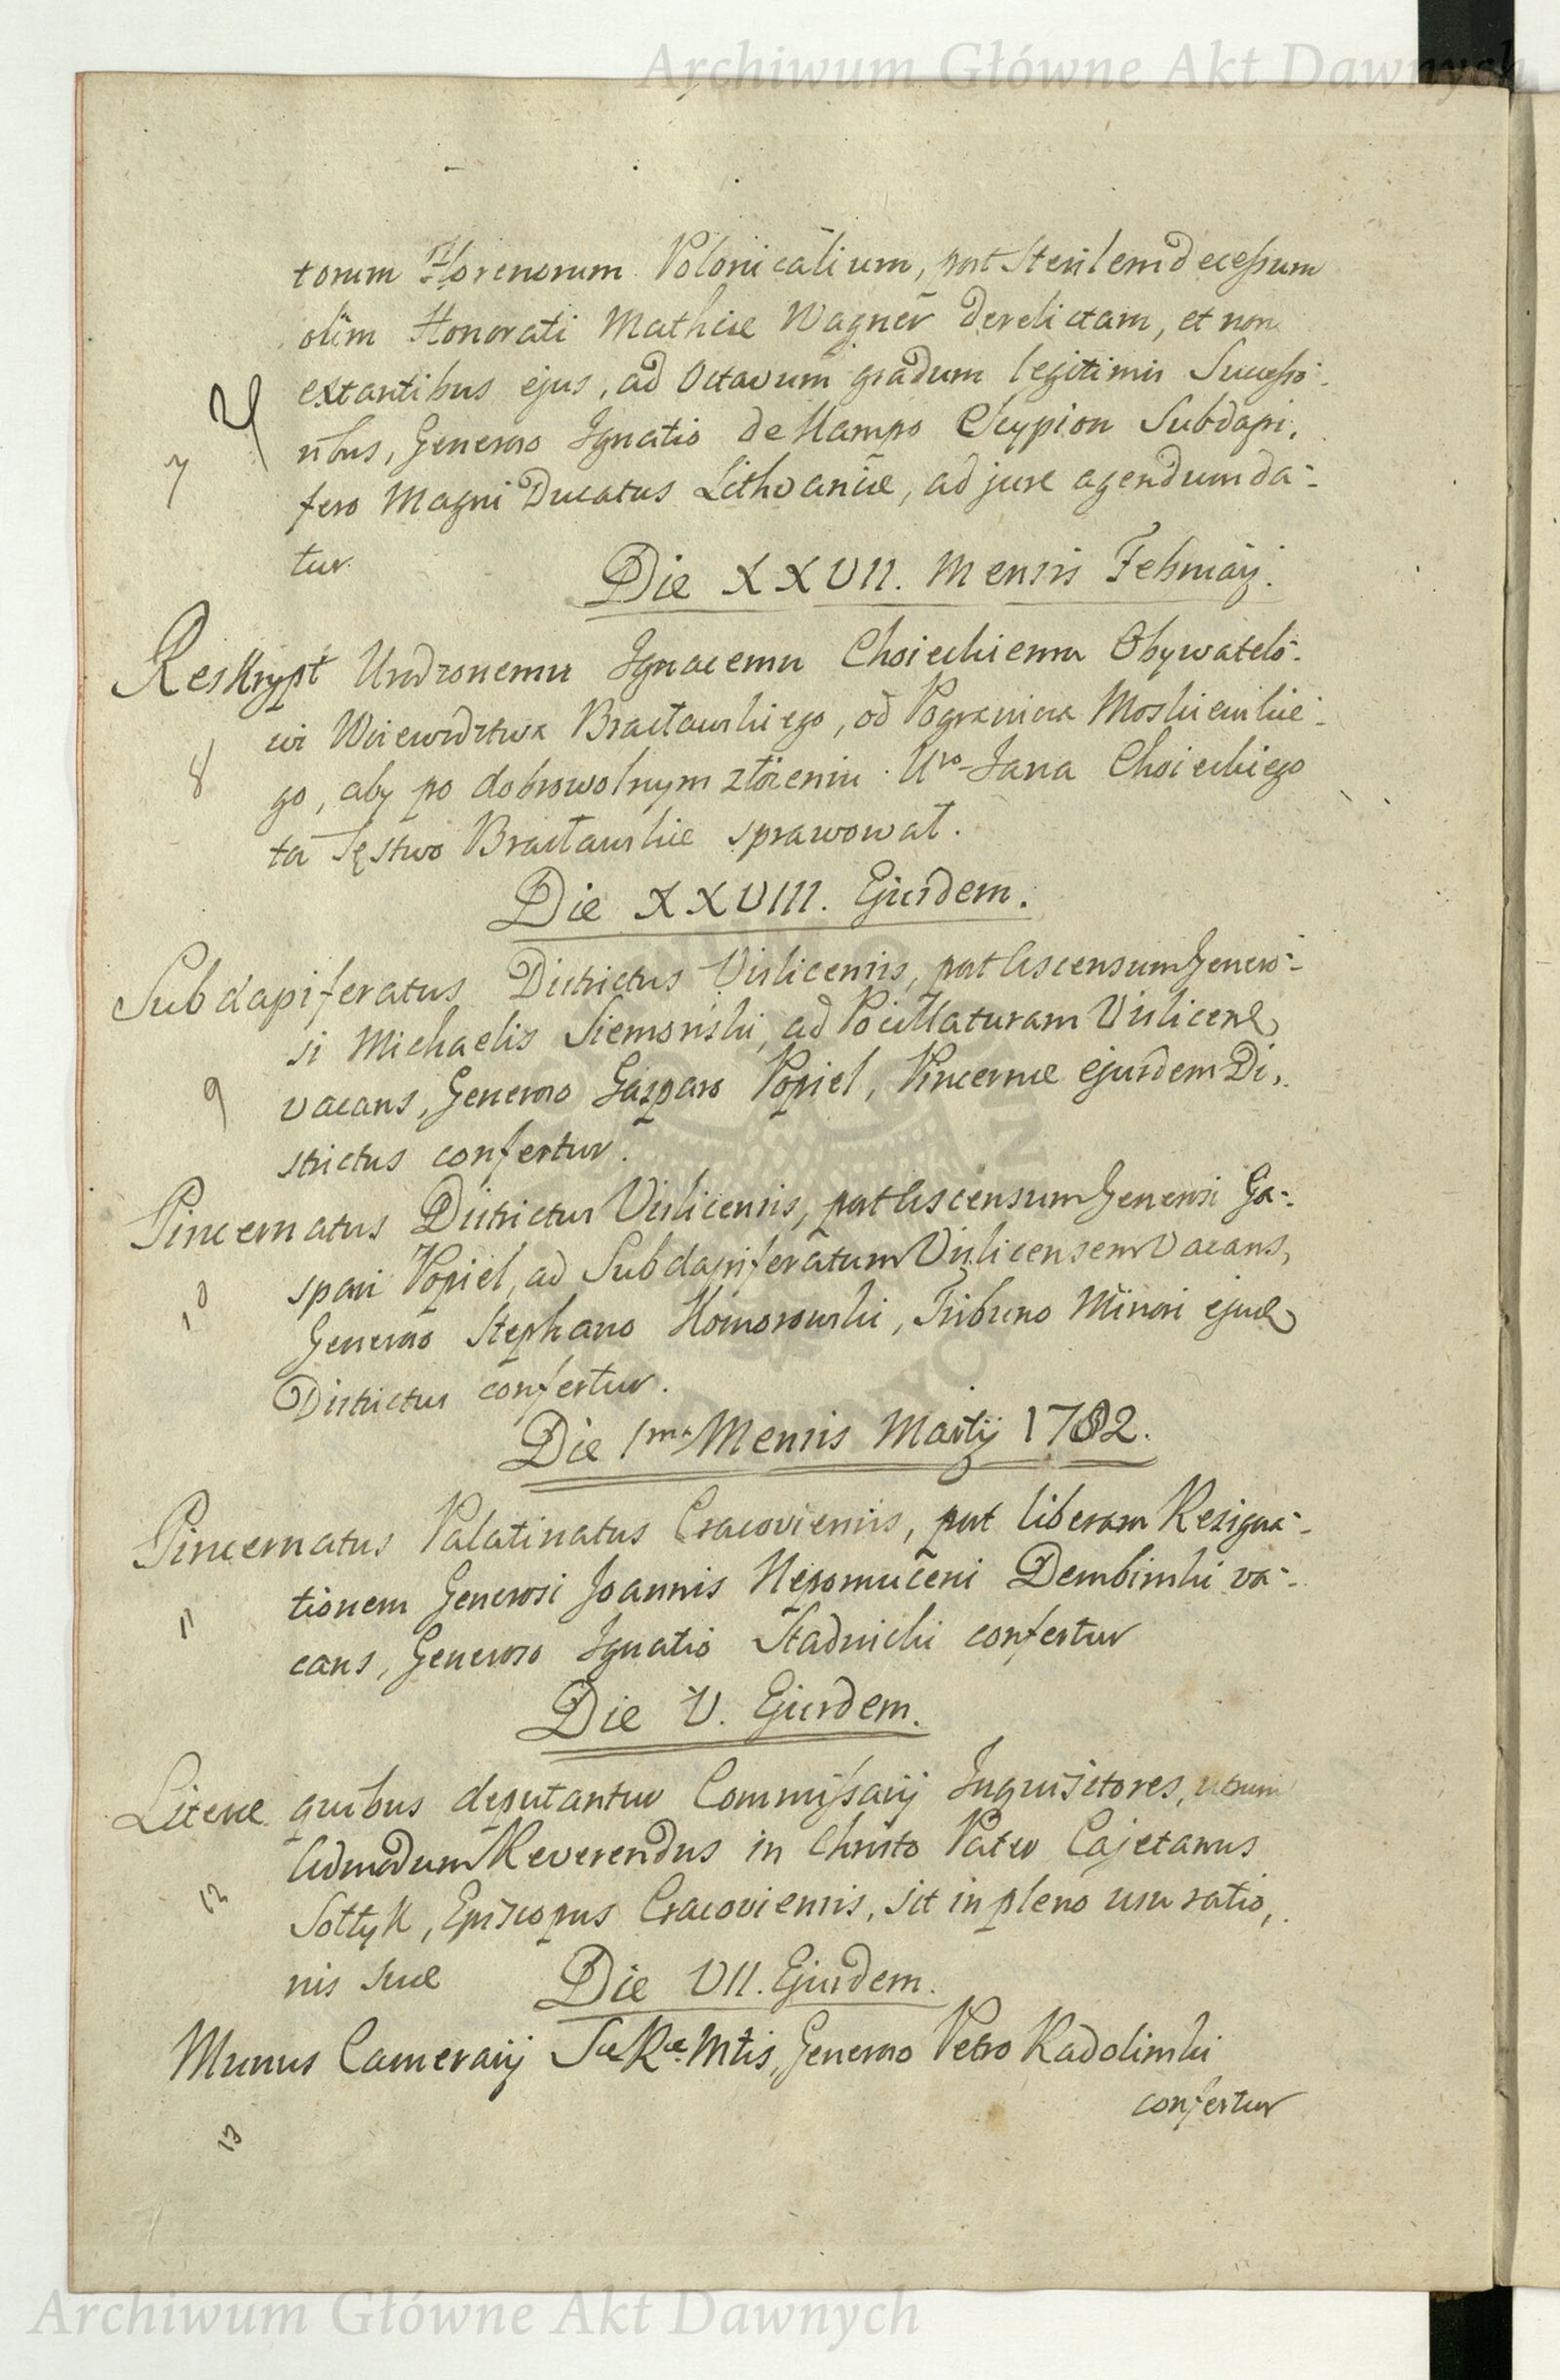 Archiwum Główne Akt Dawnych
torum Florenorum Polonicalium, post sterilem decessum
olim Honorati Mathiæ Wagner derelictam, et non
extantibus ejus, ad Octavum gradum legitimis Successo-
ribus, Generoso Ignatio de Campo Scypion Subdapi-
7
fero Magni Ducatus Lithvaniæ, ad jure agendum da-
tur.
Die XXVII. Mensis Februarij.
Reskrypt Urodzonemu Ignacemu Choieckiemu Obywatelo-
wi Woiewodztwa Bracławskiego, od Pogranicza Moskiewskie-
8
go, aby po dobrowolnym złożeniu Uro Jana Choieckiego
to Sęstwo Bracławskie sprawował.
Die XXVIII. Ejusdem.
Subdapiferatus Districtus Visliciensis, post Ascensum Genero-
si Michaelis Siemoński, ad Pocillaturam Vislicens
9
vacans, Generoso Gasparo Popiel, Pincernæ ejusdem Di-
strictus confertur.
Pincernatus Districtus Vislicensis, post Ascensum Generosi Ga-
spari Popiel, ad Subdapiferatum Vislicensem Vacans,
10
Generoso Stephano Komorowski, Tribuno Minori ejusd
Districtus confertur.
Die 1ma Mensis Martij 1782.
Pincernatus Palatinatus Cracoviensis, post liberam Resigna-
tionem Generosi Joannis Nepomuceni Dembinski va-
11
cans, Generoso Ignatio Stadnicki confertur
Die V. Ejusdem.
Literæ quibus deputantur Commissarij Inquisitores, utrum
Admodum Reverendus in Christo Pater Cajetanus
12
Sołtyk, Episcopus Cracoviensis, sit in pleno usu ratio-
nis suæ
Die VII. Ejusdem.
Munus Camerarij Sæ Ræ Mtis, Generoso Petro Radolinski
confertur
13
Archiwum Główne Akt Dawnych